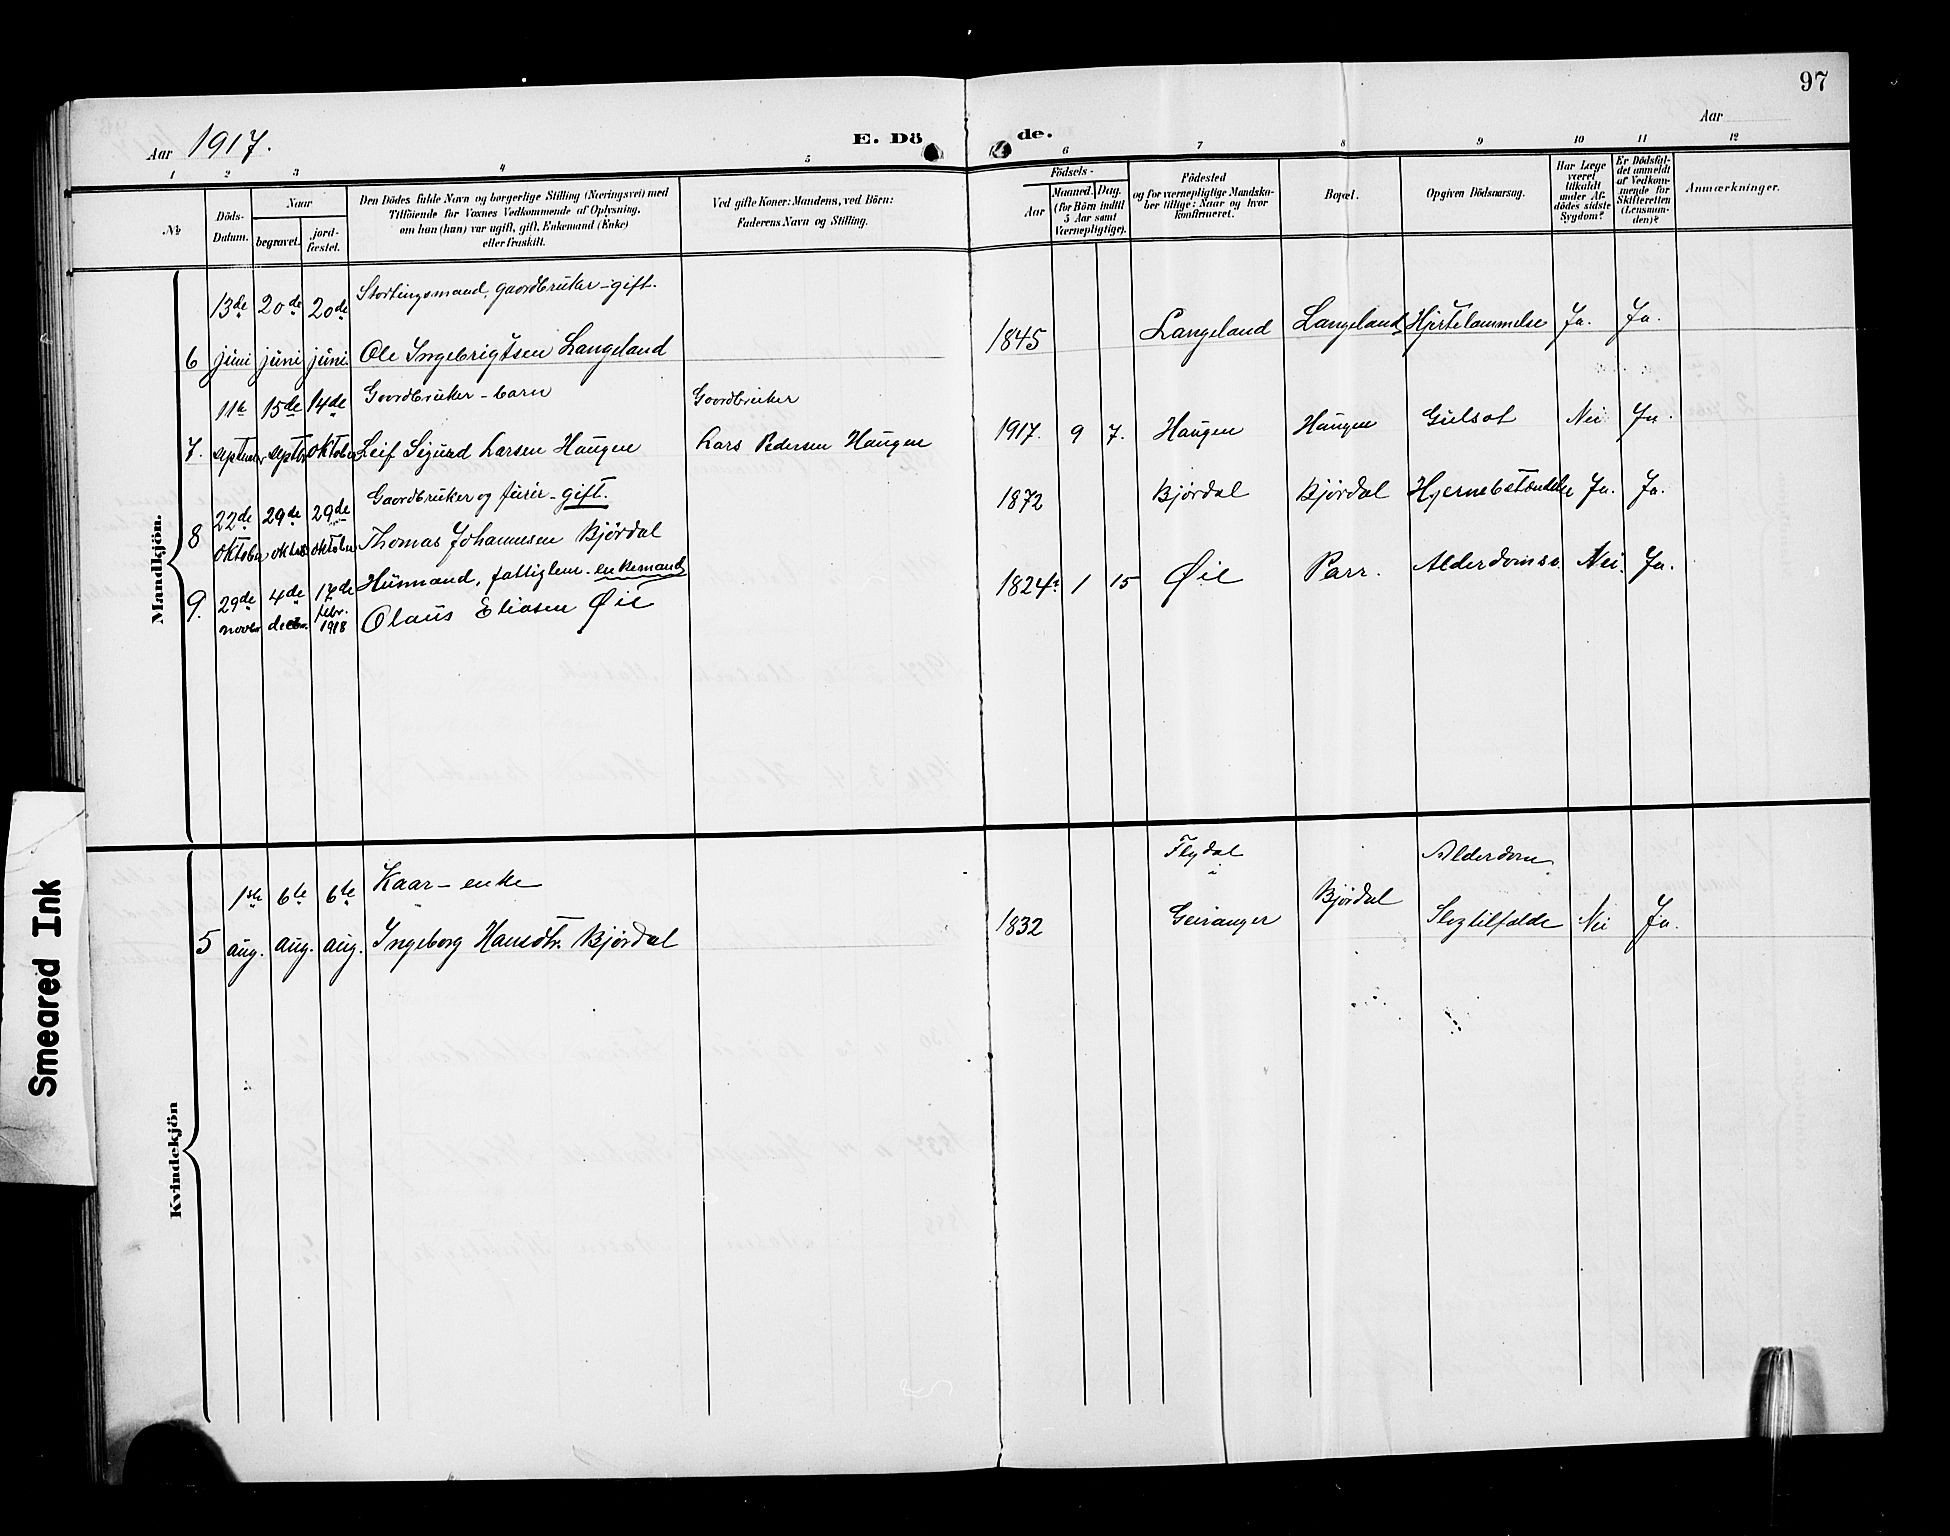 97
Aar 1917.
E. Dö
de.
Aar
1 2 3 4 5 6 7 8 9 10 11 12
No
Döds-
Datum.
Naar
begravet.
jord-
fæstet.
Den Dödes fulde Navn og borgerlige Stilling (Næringsvei) med
Tilföiende for Voxnes Vedkommende af Oplysning,
om han (hun) var ugift, gift, Enkemand (Enke)
eller fraskilt.
Ved gifte Koner: Mandens, ved Börn:
Faderens Navn og Stilling.
Födsels-
Aar
Maaned. Dag.
(for Börn indtil
5 Aar samt
Værnepligtige).
Födested
og for værnepligtige Mandska-
ber tillige: Naar og hvor
konfirmeret.
Bopæl.
Opgiven Dödsaarsag.
Har Læge
været
tilkaldt
under Af-
dödes sidste
Sygdom?
Er Dödsfal-
det anmeldt
af Vedkom-
mende for
Skifteretten
(Lensman-
den)?
Anmærkninger.
Mandkjön.
13de 20de 20de Stortingsmand, gaardbruker - gift.
6 juni juni juni Ole Ingebrigtsen Langeland 1845 Langeland Langeland Hjertelammelse Ja. Ja.
11te 15de 14de Gaardbruker - barn Gaardbruker
7. september septbr oktober Leif Sigurd Larsen Haugen Lars Pedersen Haugen 1917. 9 7. Haugen Haugen Gulsot Nei Ja.
22de 29de 29de Gaardbruker og furer - gift.
8 oktober oktbr oktober Thomas Johannesen Bjørdal 1872 Bjørdal Bjørdal Hjernebetændelse Ja. Ja.
29de 4de 17de Husmand, fattiglem - enkemand
9. novbr decbr. febr. 1918 Olaus Eliasen Øie 1824 1 15 Øie Parr. Alderdomss. Nei. Ja.
Kvindekjön
1ste 6te 6te Kaar - enke Flydal i Alderdom
5 aug. aug. aug. Ingeborg Hansdtr. Bjørdal 1832 Geiranger Bjørdal Slagtilfælde Nei Ja.
Smeared Ink